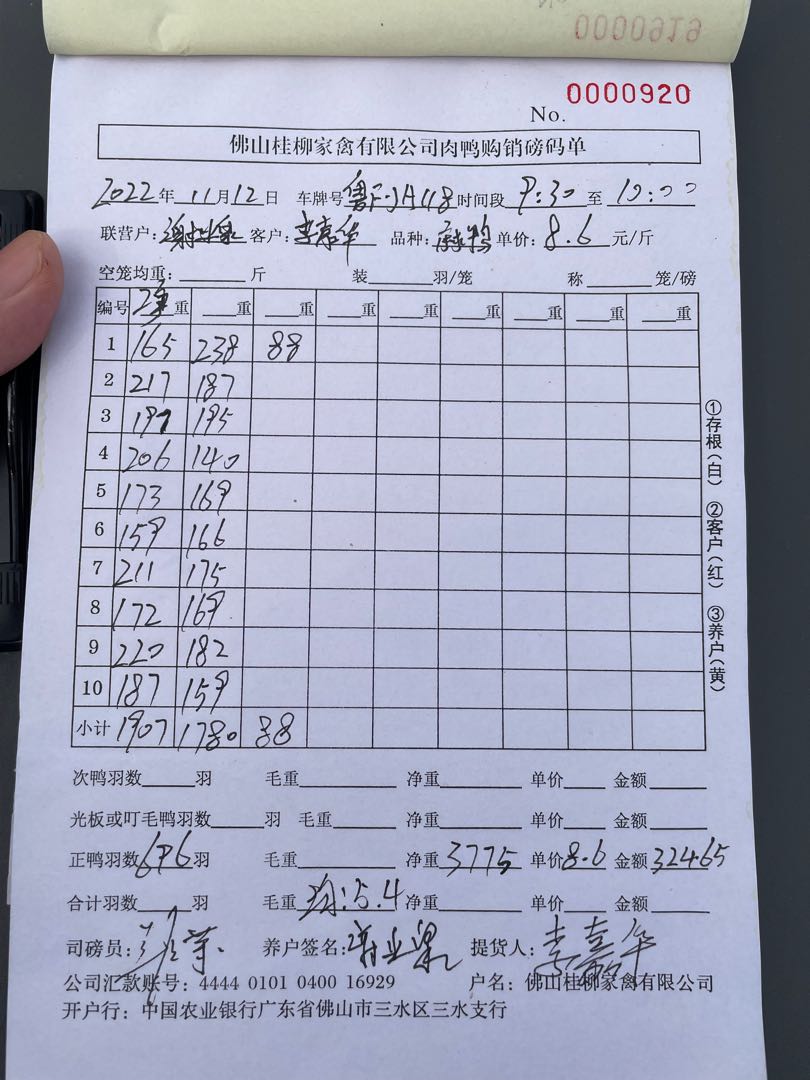 0000919
No. 0000920
佛山桂柳家禽有限公司肉鸭购销磅码单
2022年11月12日 车牌号 时间段 9:30 至 10:00
联营户: 客户:李嘉华 品种: 单价:8.6元/斤
空笼均重: 斤 装 羽/笼 称 笼/磅
编号 重 重 重 重 重 重 重 重 重
1 165 238 88
2 217 187
3 197 195
4 206 140
5 173 169
6 159 166
7 211 175
8 172 169
9 220 182
10 187 159
小计 1907 1780 88
①存根(白) ②客户(红) ③养户(黄)
次鸭羽数 羽 毛重 净重 单价 金额
光板或叮毛鸭羽数 羽 毛重 净重 单价 金额
正鸭羽数696羽 毛重 净重3775 单价8.6 金额32465
合计羽数 羽 毛重均:5.4 净重 单价 金额
司磅员: 养户签名: 提货人:李嘉华
公司汇款账号:4444 0101 0400 16929 户名:佛山桂柳家禽有限公司
开户行:中国农业银行广东省佛山市三水区三水支行